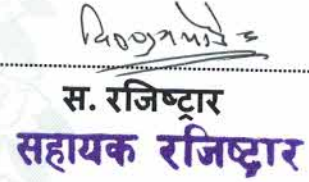 स. रजिष्ट्रार
सहायक रजिष्ट्रार